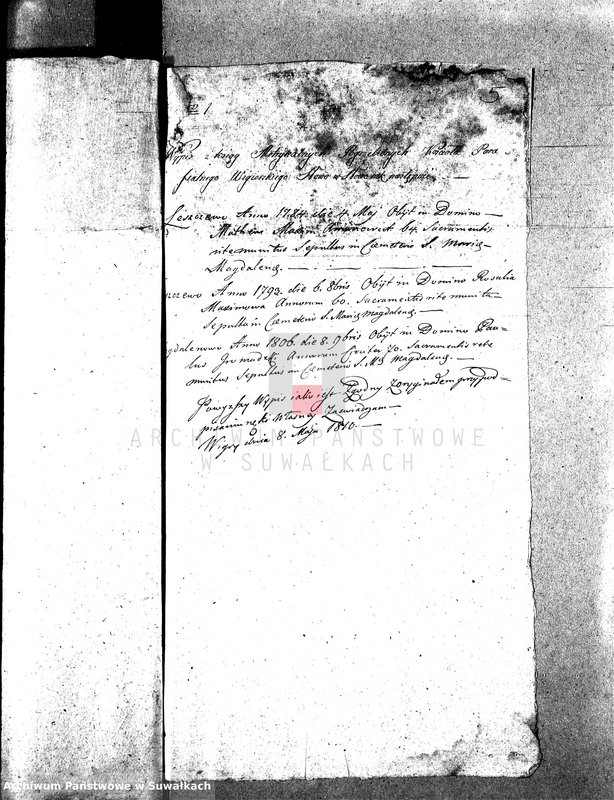 5
N 1
Wypis z Xiąg Metrykalnych Pogrzebnych Kościoła Para-
fialnego Wigierskiego Słowo w Słowo następuie. —
Leszczewo Anno 1784. die 4. Maj Obijt in Domino —
Matheus Maxim Annorum 64. Sacramentis
rite munitus Sepultus in Cœmeterio S. Mariæ
Magdalenæ. —
szczewo Anno 1793. die 6. 8bris Obijt in Domino Rosalia
Maximowa Annorum 60. Sacramentis rite munita
Sepulta in Cœmeterio S. Mariæ Magdalenæ. —
gdalenowo Anno 1806. die 8. 9bris Obijt in Domino Pau-
lus Gromadzk Annorum Circiter 70. Sacramentis rite
munitus Sepultus in Cœmeterio S. M. Magdalenæ. —
Powyższy Wypis iako iest Zgodny Z oryginałem przy pod-
pisaniu ręki Własney Zaświadczam —
Wigry dnia 8. Maja 1810. —
ARCHIWUM PAŃSTWOWE
W SUWAŁKACH
Archiwum Państwowe w Suwałkach